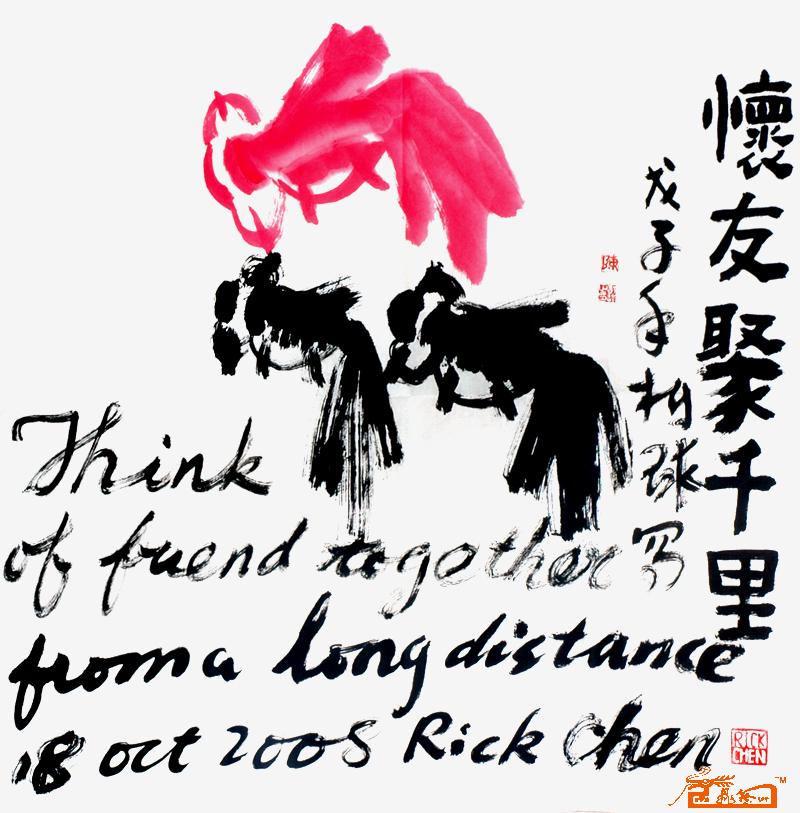 懷友聚千里
戊子年柏球写
Think
of friend together
from a long distance
18 oct 2008 Rick Chen
RICK
CHEN